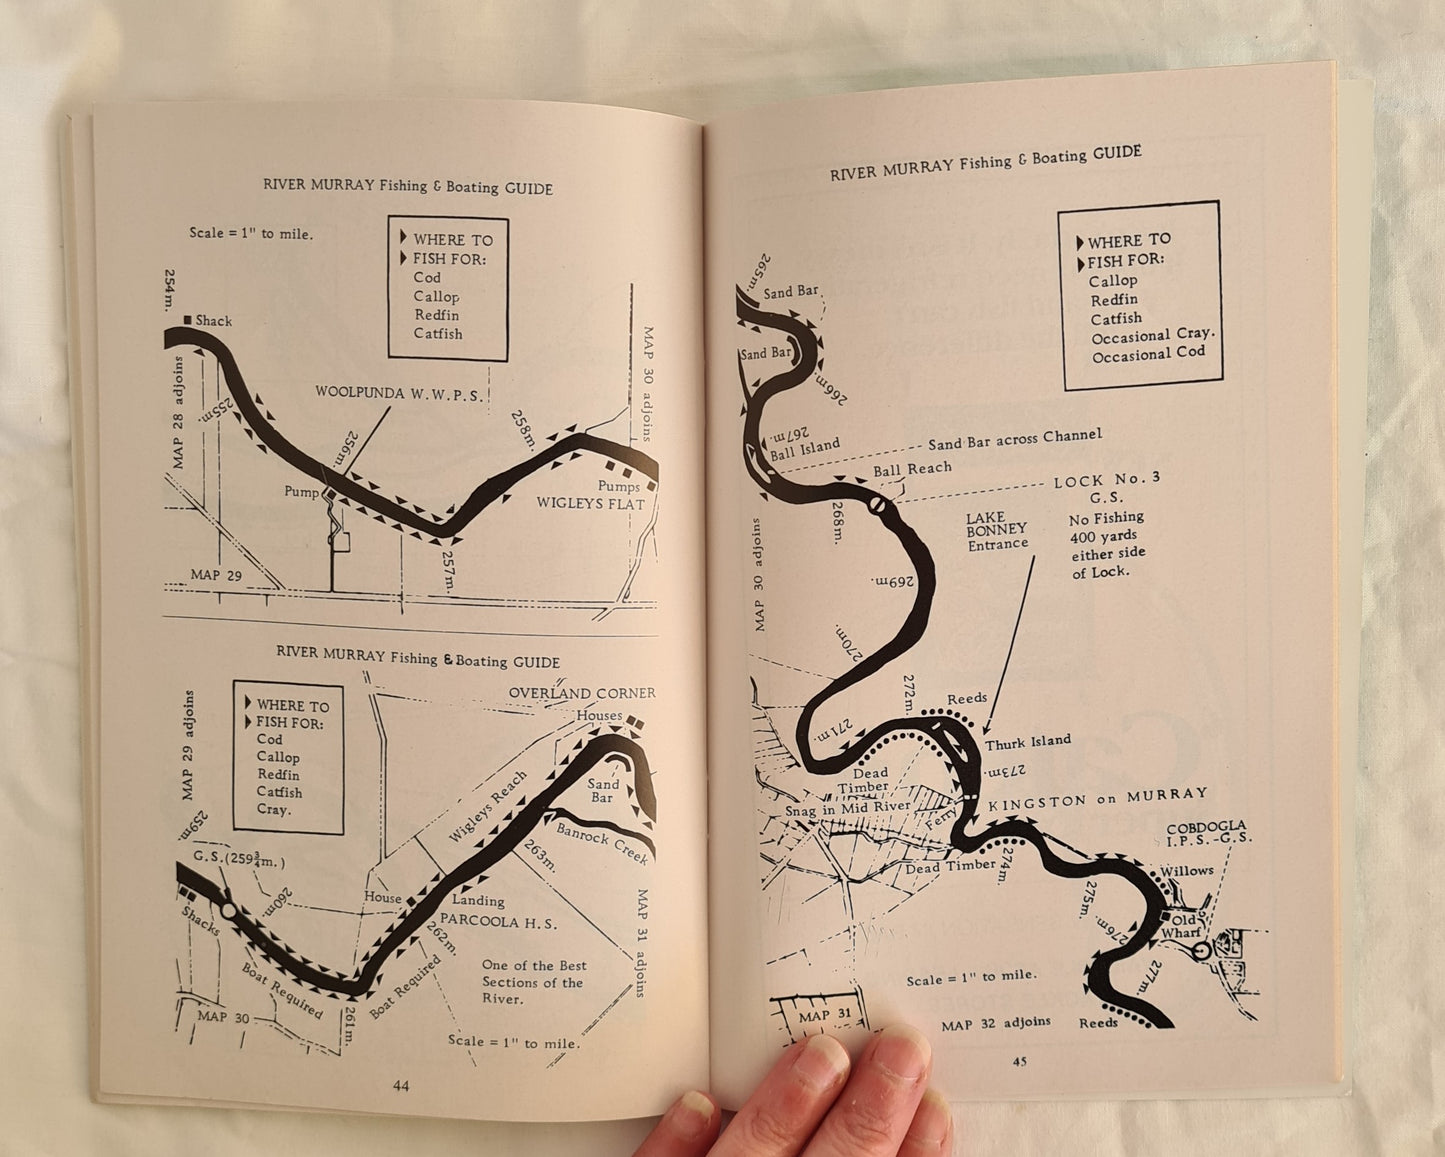 RIVER MURRAY Fishing & Boating GUIDE
Scale = 1" to mile.
WHERE TO
FISH FOR:
Cod
Callop
Redfin
Catfish
254m.
Shack
MAP 28 adjoins
255m.
WOOLPUNDA W.W.P.S.
256m.
258m.
MAP 30 adjoins
Pump
Pumps
WIGLEYS FLAT
257m.
MAP 29
RIVER MURRAY Fishing & Boating GUIDE
OVERLAND CORNER
Houses
WHERE TO
FISH FOR:
Cod
Callop
Redfin
Catfish
Cray.
MAP 29 adjoins
Sand
Bar
Wigleys Reach
259m.
G.S.(259¾m.)
Banrock Creek
263m.
260m.
House
Landing
PARCOOLA H.S.
Shacks
262m.
MAP 31 adjoins
Boat Required
Boat Required
One of the Best
Sections of the
River.
MAP 30
261m.
Scale = 1" to mile.
44
RIVER MURRAY Fishing & Boating GUIDE
WHERE TO
FISH FOR:
Callop
Redfin
Catfish
Occasional Cray.
Occasional Cod
265m.
Sand Bar
Sand Bar
266m.
267m.
Ball Island
Sand Bar across Channel
Ball Reach
LOCK No. 3
G.S.
No Fishing
400 yards
either side
of Lock.
268m.
LAKE
BONNEY
Entrance
MAP 30 adjoins
269m.
270m.
272m.
Reeds
271m.
Thurk Island
273m.
Dead
Timber
Snag in Mid River
Ferry
KINGSTON on MURRAY
COBDOGLA
I.P.S.-G.S.
Dead Timber
274m.
Willows
275m.
Old
Wharf
276m.
277m.
Scale = 1" to mile.
MAP 31
MAP 32 adjoins
Reeds
45